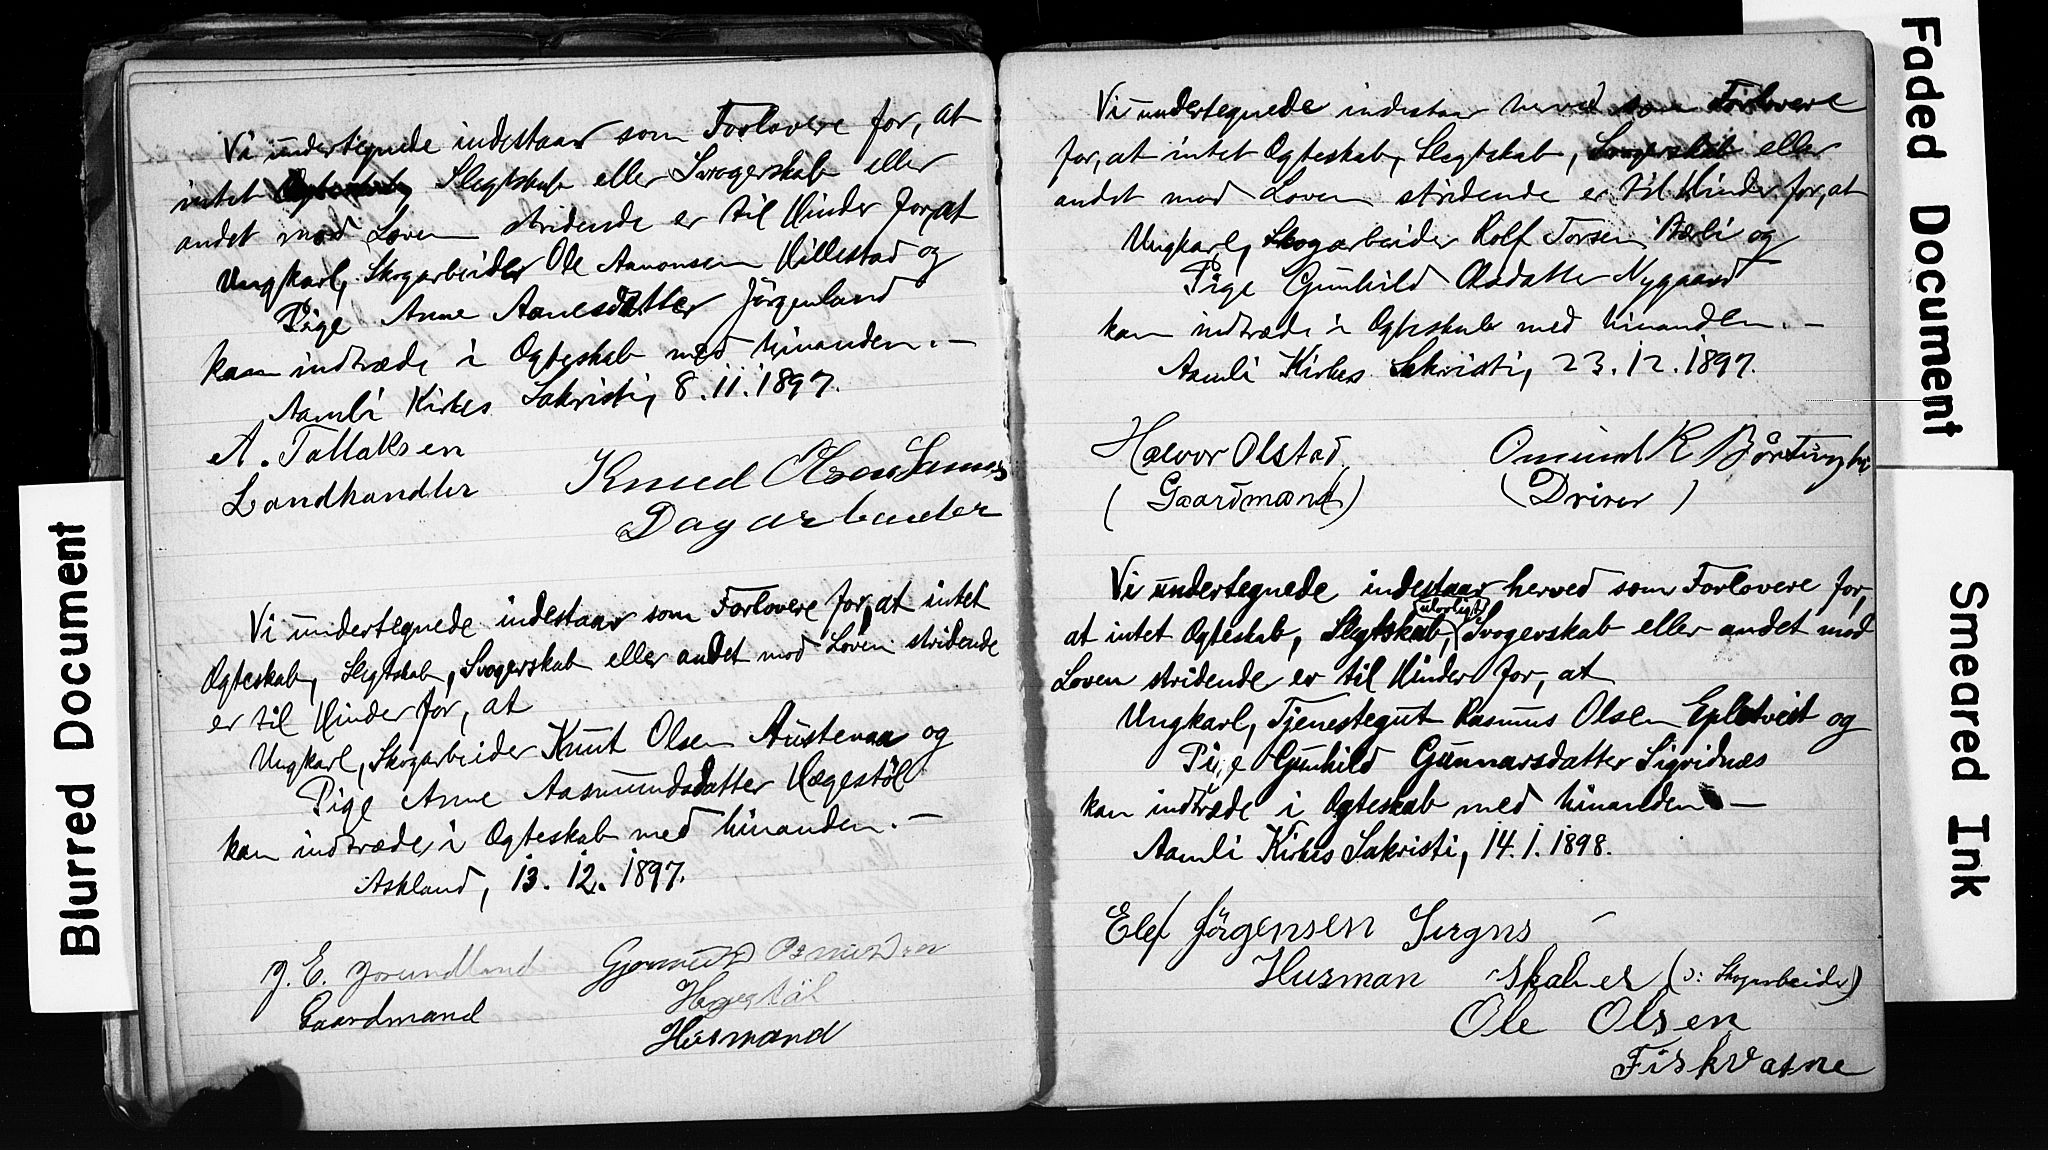 Vi undertegnede indestaar som Forlovere for, at
intet Slegtskab eller Svogerskab eller
andet mod Loven stridende er til Hinder for, at
Ungkarl, Skogarbeider Ole Aanonsen Hillestad og
Pige Anne Aanesdatter Jörgenland
kan indtræde i Ogteskab med hinanden. —
Aamli Kirkes Sakristi, 8.11.1897.
A. Tallaksen
Landhandler
Knud Olsen
Dagarbeider
Vi undertegnede indestaar som Forlovere for, at intet
Ogteskab, Slegtskab, Svogerskab eller andet mod Loven stridende
er til Hinder for, at
Ungkarl, Skogarbeider Knut Olsen Austenaa og
Pige Anne Aasmundsdatter Hægestöl
kan indtræde i Ogteskab med hinanden. —
Askland, 13. 12. 1897.
J. E. Jorundland
Gaardmand
Gjermund Osmundsen
Hegestöl
Husmand
Vi undertegnede indestaar herved som Forlovere
for, at intet Ogteskab, Slegtskab, Svogerskab eller
andet mod Loven stridende er til Hinder for, at
Ungkarl, Skogarbeider Rolf Torsen og
Pige Gunhild Olsdatter Nygaard
kan indtræde i Ogteskab med hinanden. —
Aamli Kirkes Sakristi, 23.12.1897.
Halvor Olstad
(Gaardmand)
Omund K
(Driver)
Vi undertegnede indestaar herved som Forlovere for,
ulovligt
at intet Ogteskab, Slegtskab, Svogerskab eller andet mod
Loven stridende er til Hinder for, at
Ungkarl, Tjenestegut Rasmus Olsen Epletveit og
Pige Gunhild Gunnarsdatter Sigridnæs
kan indtræde i Ogteskab med hinanden —
Aamli Kirkes Sakristi, 14.1.1898.
Elef Jörgensen
Husman skaber (ɔ: Skogarbeider)
Ole Olsen
Fiskvatne
Blurred Document
Faded Document
Smeared Ink